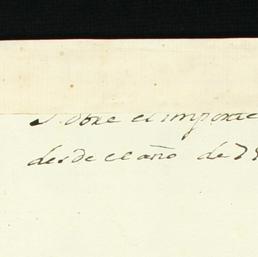 Sobre el importe
desde el año de 79